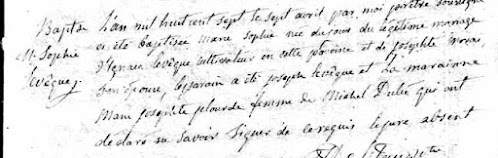 Baptes L'an mil huit cent sept le sept avril par moi prêtre soussigné
M. Sophie a été baptisée Marie Sophie née de jour du légitime mariage
Levêque d'Ignace Levêque cultivateur en cette paroisse et de Josephte
son épouse, le parain a été Joseph Levêque et La maraine
Marie Josephte pelourde femme de Michel Dubé qui ont
déclaré ne savoir signer de ce requis le père absent